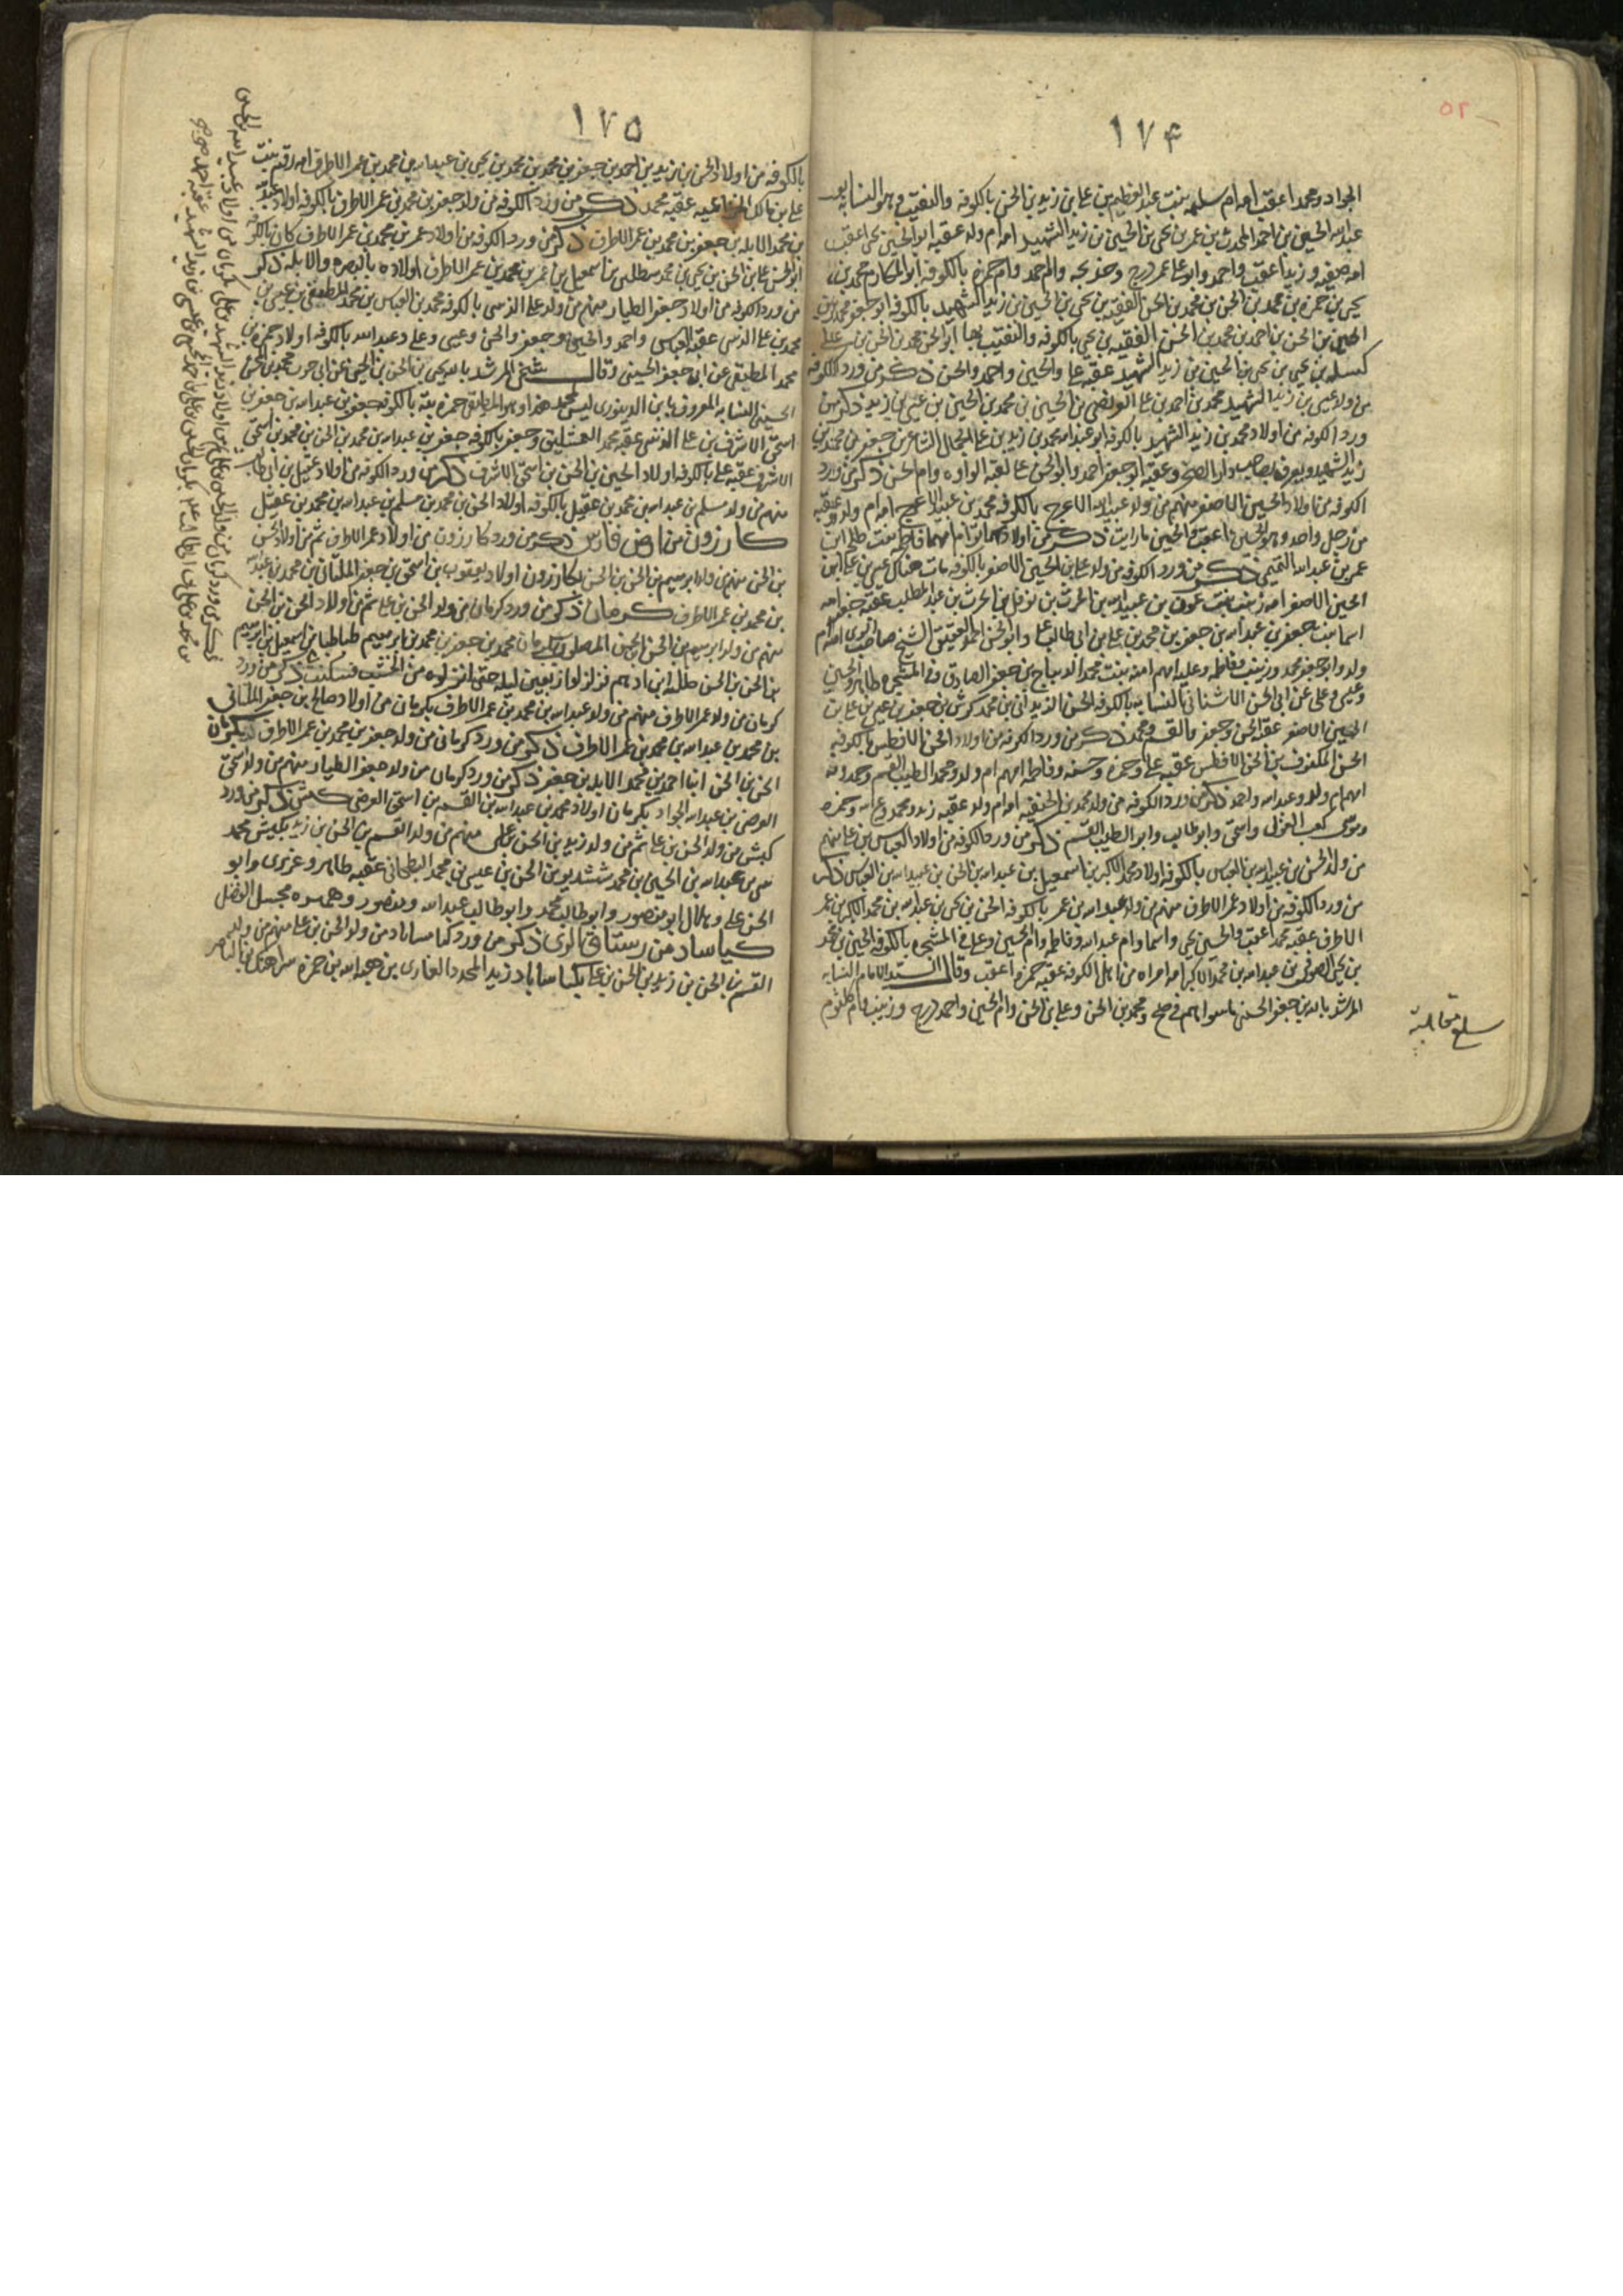 ١٧۴
الجواد ومحمدا اعقب امه ام سلمه بنت عبد العظيم بن على بن زيد بن الحسن بالكوفه والنقيب وهو النسابه
عبد الله الحسين بن احمد المحدث بن عمر بن يحيى بن الحسين بن زيد الشهيد امه ام ولد عقبه ابو الحسين يحيى اعقب
امه صفيه وزيدا اعقب واحمد وابو على عمر درج وخديجه وام احمد وام حمزه بالكوفه ابو المكارم محمد بن
يحيى بن حمزه بن محمد بن الحسن بن محمد بن الحسن الفقيه بن يحيى بن الحسين بن زيد الشهيد بالكوفه ابو جعفر محمد بن
الحسين بن الحسن بن احمد بن محمد بن الحسن الفقيه بن يحيى بالكوفه والنقيب بها ابو الحسن محمد بن الحسن بن على
كسله بن يحيى بن يحيى بن الحسين بن زيد الشهيد عقبه على والحسين واحمد والحسن ذكر من ورد الكوفه
من ولد عيسى بن زيد الشهيد محمد بن احمد بن على بن الحسين بن محمد بن الحسين بن عيسى بن زيد ذكر من
ورد الكوفه من اولاد محمد بن زيد الشهيد بالكوفه ابو عبد الله محمد بن زيد بن على الحمال الشاعر بن جعفر بن محمد بن
زيد الشهيد ويعرف بصاحب دار الصخر وعقبه ابو جعفر احمد وابو الحسن على لقبه الواوه وام الحسن ذكر من ورد
الكوفه من اولاد الحسين الاصغر منهم من ولد عبيد الله الاعرج بالكوفه محمد بن عبيد الله الاعرج امه ام ولد عقبه
من رجل واحد وهو الحسن ما اعقب والحسين ما رايت ذكر من اولادهما امهما فاطمه بنت طلحه بن
عمر بن عبد الله التيمى ذكر من ورد الكوفه من ولد على بن الحسين الاصغر بالكوفه مات هناك عيسى بن على بن
الحسين الاصغر امه زينب بنت عون بن عبيد الله بن الحرث بن نوفل بن الحرث بن عبد المطلب عقبه جعفر امه
اسما بنت جعفر بن عبد الله بن جعفر بن محمد بن على بن ابى طالب على وابو الحسن احمد العقيقى الشيخ صاحب امه ام
ولد وابو جعفر محمد وزينب وفاطمه وعليه امهم امنه بنت محمد الديباج بن جعفر الصادق وفى المشجره طاهر والحسين
وعيسى وعلى عن ابى الحسن الاشنانى النسابه بالكوفه الحسن بن محمد كرش بن جعفر بن عيسى بن على بن
الحسين الاصغر عقبه الحسن وجعفر والقسم ومحمد ذكر من ورد الكوفه من اولاد الحسن الافطس بالكوفه
الحسن المكفوف بن الحسن الافطس عقبه على وحمزه وحسنه وفاطمه امهم ام ولد ومحمد الطيب القسم وحمدونه
امهم ام ولد وعبد الله واحمد ذكر من ورد الكوفه من ولد محمد بن الحنفيه امه ام ولد عقبه زيد ومحمد وعبد الله وحمزه
وموسى كعب الغزال واسحق وابو طالب وابو الطيب القسم ذكر من ورد الكوفه من اولاد العباس بن على منهم
من ولد الحسن بن عبيد الله بن العباس بالكوفه اولاد محمد الاكبر بن اسمعيل بن عبد الله بن الحسن بن عبيد الله بن العباس ذكر
من ورد الكوفه من اولاد عمر الاطرف منهم من ولد عبد الله بن عمر بالكوفه الحسن بن يحيى بن عبد الله بن محمد الاكبر بن عمر
الاطرف عقبه محمد اعقب والحسين ويحيى واسما وام عبد الله وفاطمه وام الحسين وعلى فى المشجره بالكوفه الحسين بن محمد
بن يحيى الصوفى بن عبد الله بن محمد الاكبر امه امراه من اهل الكوفه عقبه حمزه اعقب وقال السيد الامام النسابه
المرشد بالله بن جعفر الحسنى ومحمد بن الحسن وعلى بن الحسن وام الحسين واحمد درج وزينب وام كلثوم
١٧۵
بالكوفه من اولاد الحسن بن زيد بن احمد بن جعفر بن محمد بن محمد بن يحيى بن عبد الله بن محمد بن عمر الاطرف امه رقيه بنت
على بن مالك الخزاعيه عقبه محمد ذكر من ورد الكوفه من ولد جعفر بن محمد بن عمر الاطرف بالكوفه اولاد
بن محمد الابله بن جعفر بن محمد بن عمر الاطرف ذكر من ورد الكوفه من اولاد عمر بن محمد بن عمر الاطرف كان بالكوفه
ابو الحسن على بن الحسن بن يحيى بن محمد بن اسمعيل بن عمر بن محمد بن عمر الاطرف اولاده بالبصره والابله ذكر
من ورد الكوفه من اولاد جعفر الطيار منهم من ولد على الزينبى بالكوفه محمد بن العباس بن محمد المطبقى بن عيسى بن
محمد بن على الزينبى عقبه العباس واحمد والحسين وجعفر والحسن وعيسى وعلى وعبد الله بالكوفه اولاد حمزه بن
محمد المطبقى عن ابى جعفر الحسينى وقال شيخى المرشد بالله يحيى بن الحسن بن الحسين عن ابى حرب محمد بن الحسن
الحسينى النسابه المعروف بابن الدينورى ليس لمحمد هذا وهو المطبقى حمزه بته بالكوفه جعفر بن عبد الله بن جعفر بن
اسحق الاشرف بن على الزينبى عقبه محمد وجعفر بالكوفه جعفر بن عبد الله بن محمد بن الحسن بن محمد بن اسحق
الاشرف عقبه على بالكوفه اولاد الحسين بن الحسن بن اسحق الاشرف ذكر من ورد الكوفه من اولاد عقيل بن ابى طالب
منهم من ولد مسلم بن عبد الله بن محمد بن عقيل بالكوفه اولاد الحسن بن محمد بن مسلم بن عبد الله بن محمد بن عقيل
كازرون من ارض فارس ذكر من ورد كازرون من اولاد عمر الاطرف ثم من اولاد الحسن
بن الحسن منهم من ولد ابرهيم بن الحسن بن الحسن بكازرون اولاد يعقوب بن اسحق بن جعفر الملتانى بن محمد بن عبد الله
بن محمد بن عمر الاطرف كرمان ذكر من ورد كرمان من ولد الحسن بن على ثم من اولاد الحسن بن الحسن
منهم من ولد ابرهيم بن الحسن بن الحسن المصلوب بكرمان محمد بن جعفر بن محمد بن ابرهيم طباطبا بن اسمعيل بن ابرهيم
بن الحسن بن الحسن ظلمه ابن ادهم فزلزلوا اربعين ليله حتى انزلوه من الخشب فسكنت ذكر من ورد
كرمان من ولد عمر الاطرف منهم من ولد عبد الله بن محمد بن عمر الاطرف بكرمان من اولاد صالح بن جعفر الملتانى
بن محمد بن عبد الله بن محمد بن عمر الاطرف ذكر من ورد كرمان من ولد جعفر بن محمد بن عمر الاطرف بكرمان
الحسن بن الحسن ابنا احمد بن محمد الابله بن جعفر ذكر من ورد كرمان من ولد جعفر الطيار منهم من ولد اسحق
العرضى بن عبد الله الجواد بكرمان اولاد محمد بن عبد الله بن القسم بن اسحق العرضى كبش ذكر من ورد
كبش من ولد الحسن بن على ثم من ولد زيد بن الحسن بن على منهم من ولد القسم بن الحسن بن زيد بكبش محمد
بن عبد الله بن الحسين بن محمد ششديو بن الحسن بن عيسى بن محمد البطحانى عقبه طاهر وعزيزى وابو
الحسن على وهلال ابو منصور وابو طالب محمد وابو طالب عبد الله ومنصور
كياساباد من رستاق الرى ذكر من ورد كياساباد من ولد الحسن بن على منهم من ولد
القسم بن الحسن بن زيد بن الحسن بن على بكياساباد زيد بن عبد الله بن حمزه